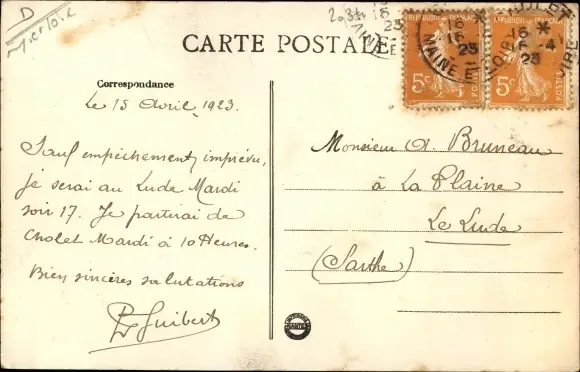 D
CARTE POSTALE
Correspondance
Le 15 Avril 1923.
Sauf empêchement imprévu,
je serai au Lude Mardi
soir 17. Je partirai de
Cholet Mardi à 10 Heures.
Bien sincères salutations
Guibert
Monsieur A. Bruneau
à La Plaine
Le Lude
(Sarthe)
5c
POSTES
5c
POSTES
16
16
23
MAINE E
CHOLET
16 *
-4
23
LOIRE